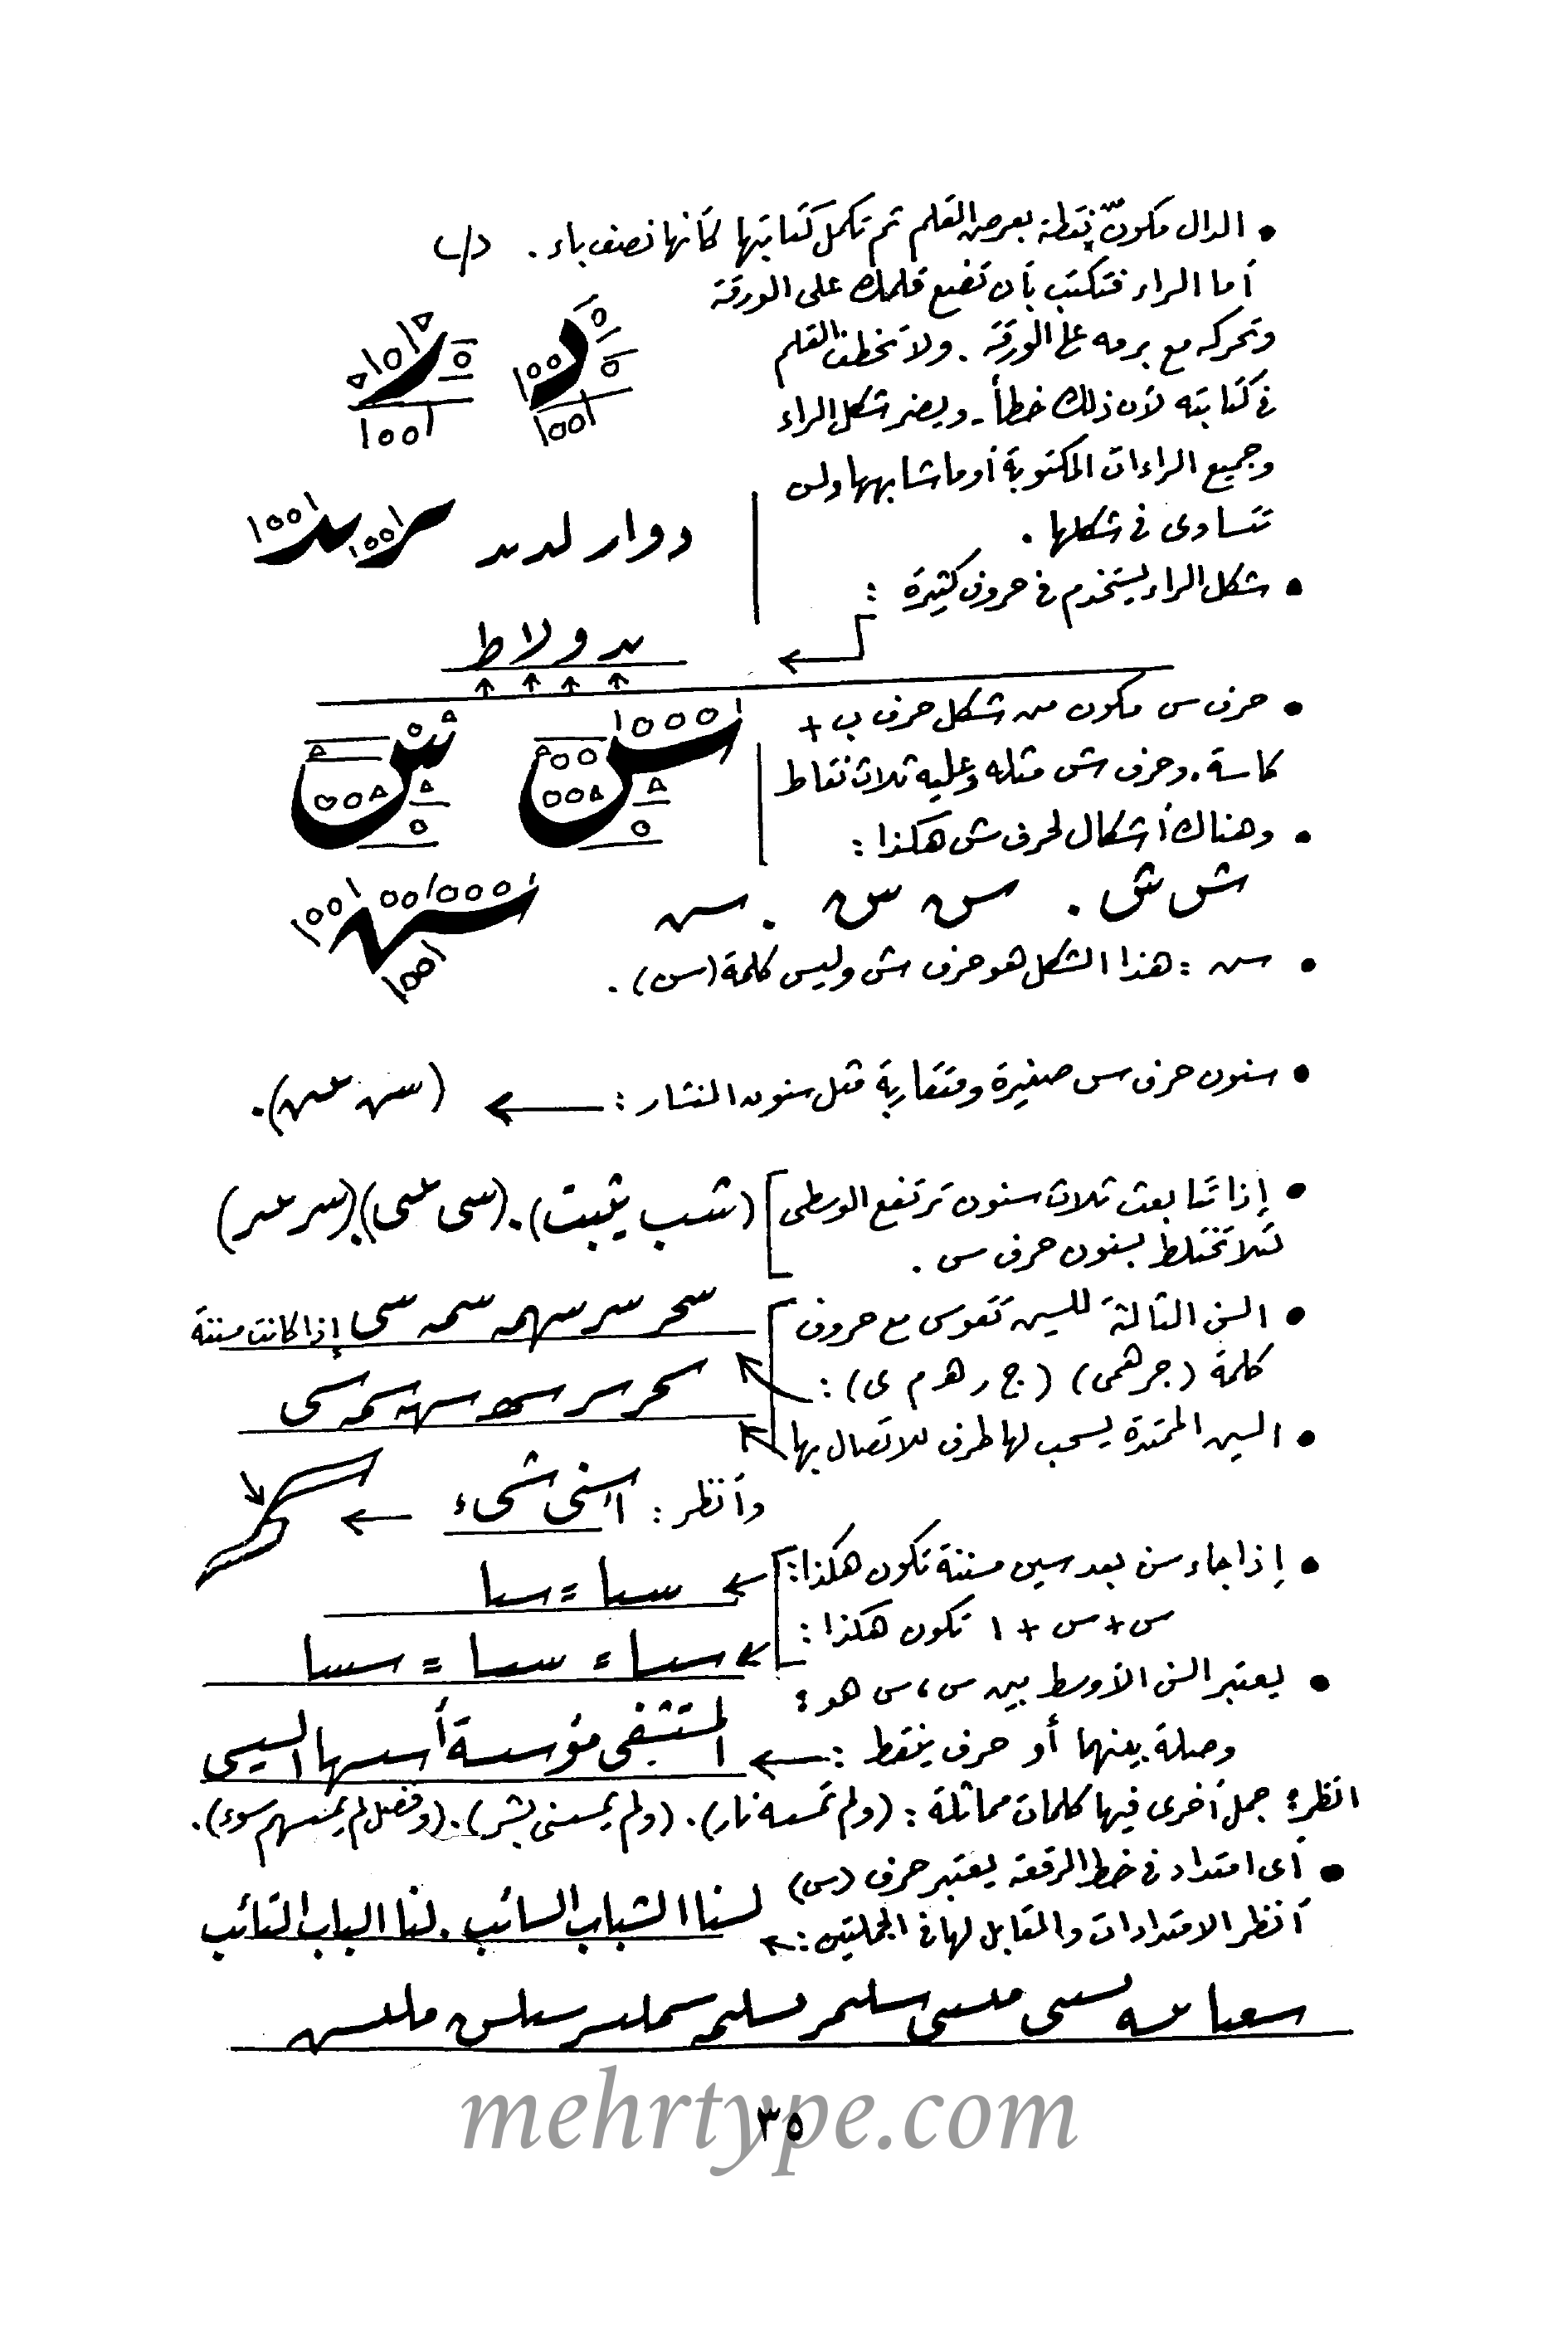 • الدال مكونّ بنقطة بعرض القلم ثم تكمل كتابتها كأنها نصف باء .
أما الراء فتكتب بأن تضع قلمك على الورقة
وتحركه مع برمه على الورقة . ولا تخطف القلم
في كتابته لأن ذلك خطأ - ويضر شكل الراء
وجميع الراءات المكتوبة أو ما شابهها ولن
تتساوى في شكلها .
دوار لد ند
• شكل الراء يستخدم في حروف كثيرة :
ند و لا ط
• حرف س مكون من شكل حرف ب +
كاسة . وحرف ش مثله وعليه ثلاث نقاط
س ش
• وهناك أشكال لحرف ش هكذا :
ش ش . س س . س
• س : هذا الشكل هو حرف ش وليس كلمة (سن) .
• سنون حرف س صغيرة ومتقاربة مثل سنون المنشار :
• إذا تتابعت ثلاث سنون ترتفع الوسطى
لئلا تختلط بسنون حرف س .
(شب يثبت) .
• السن الثالثة للسين تتقوس مع حروف
كلمة (جرهمى) (ج ر هـ م ى) :
سحر سر سهم سمه سى إذا كانت مسننة
• السين الممتدة يسحب لها طرف للاتصال بها
وأنظر : اسنى شىء
• إذا جاء سن بعد سين مسننة تكون هكذا :
سبا = سبا
س + س + ا تكون هكذا :
• يعتبر السن الأوسط بين س ، س هو :
وصلة بينهما أو حرف ينقط :
المستشفى مؤسسة أسسها السيسى
انظر : جمل أخرى فيها كلمات مماثلة : (ولم تمسسه نار) . (ولم يمسسنى بشر) . (وفضل لم يمسسهم سوء) .
• أى امتداد في خط الرقعة يعتبر حرف (س)
أنظر الامتدادات والمقابل لها في الجملتين :
لسنا الشباب السائب . لنا الباب التائب
mehrtype.com
٣٥